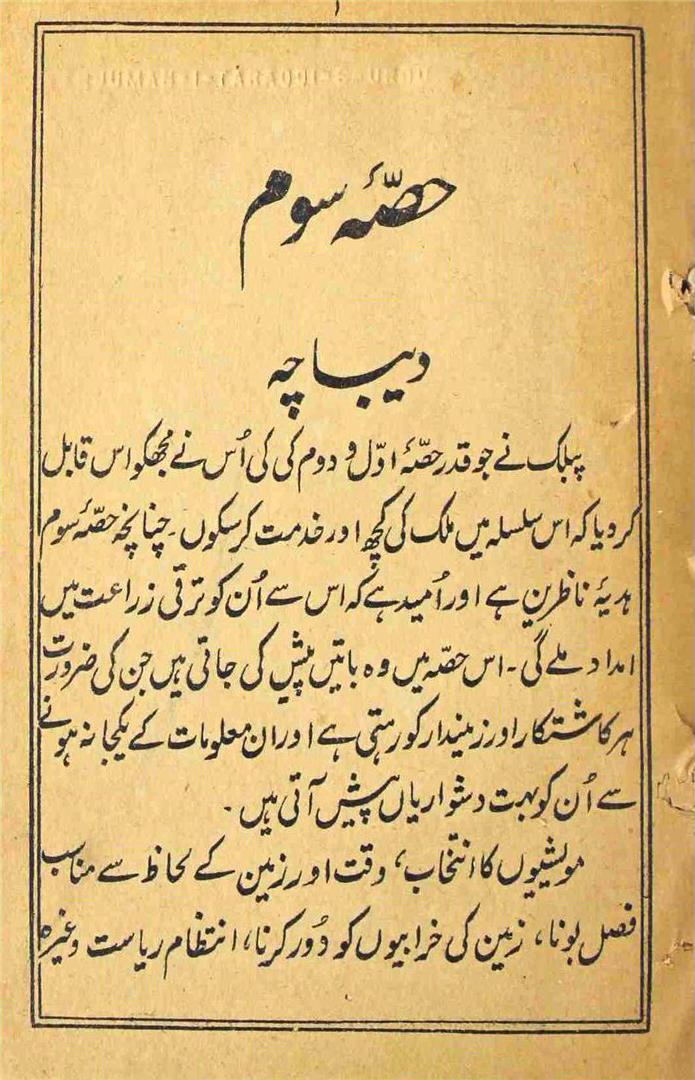 ۱
ANJUMAN-I-TARAQQI-E-URDU
حصّۂ سوم
دیباچہ
پبلک نے جو قدر حصّۂ اوّل و دوم کی کی اُس نے مجھکو اس قابل
کر دیا کہ اس سلسلہ میں ملک کی کچھ اور خدمت کر سکوں۔ چنانچہ حصّۂ سوم
ہدیۂ ناظرین ہے اور اُمید ہے کہ اس سے اُن کو ترقی زراعت میں
امداد ملے گی۔ اس حصّہ میں وہ باتیں پیش کی جاتی ہیں جن کی ضرورت
ہر کاشتکار اور زمیندار کو رہتی ہے اور ان معلومات کے یکجا نہ ہونے
سے اُن کو بہت دشواریاں پیش آتی ہیں۔
مویشیوں کا انتخاب، وقت اور زمین کے لحاظ سے مناسب
فصل بونا، زمین کی خرابیوں کو دُور کرنا، انتظام ریاست وغیرہ